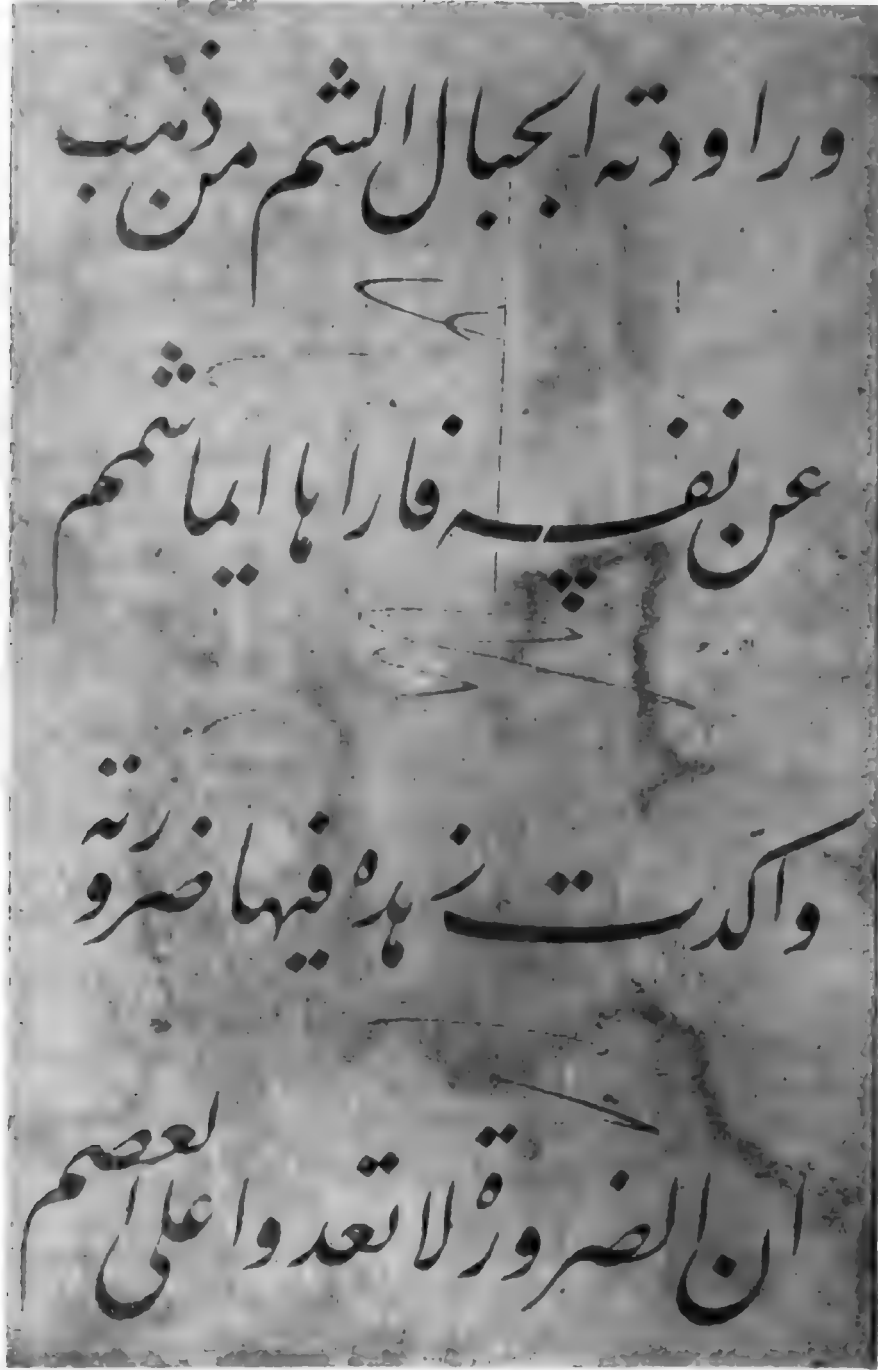 وراودته الجبال الشم من ذهب
عن نفسه فاراها ايما شمم
واكدت زهده فيها ضرورته
ان الضرورة لا تعدوا على العصم